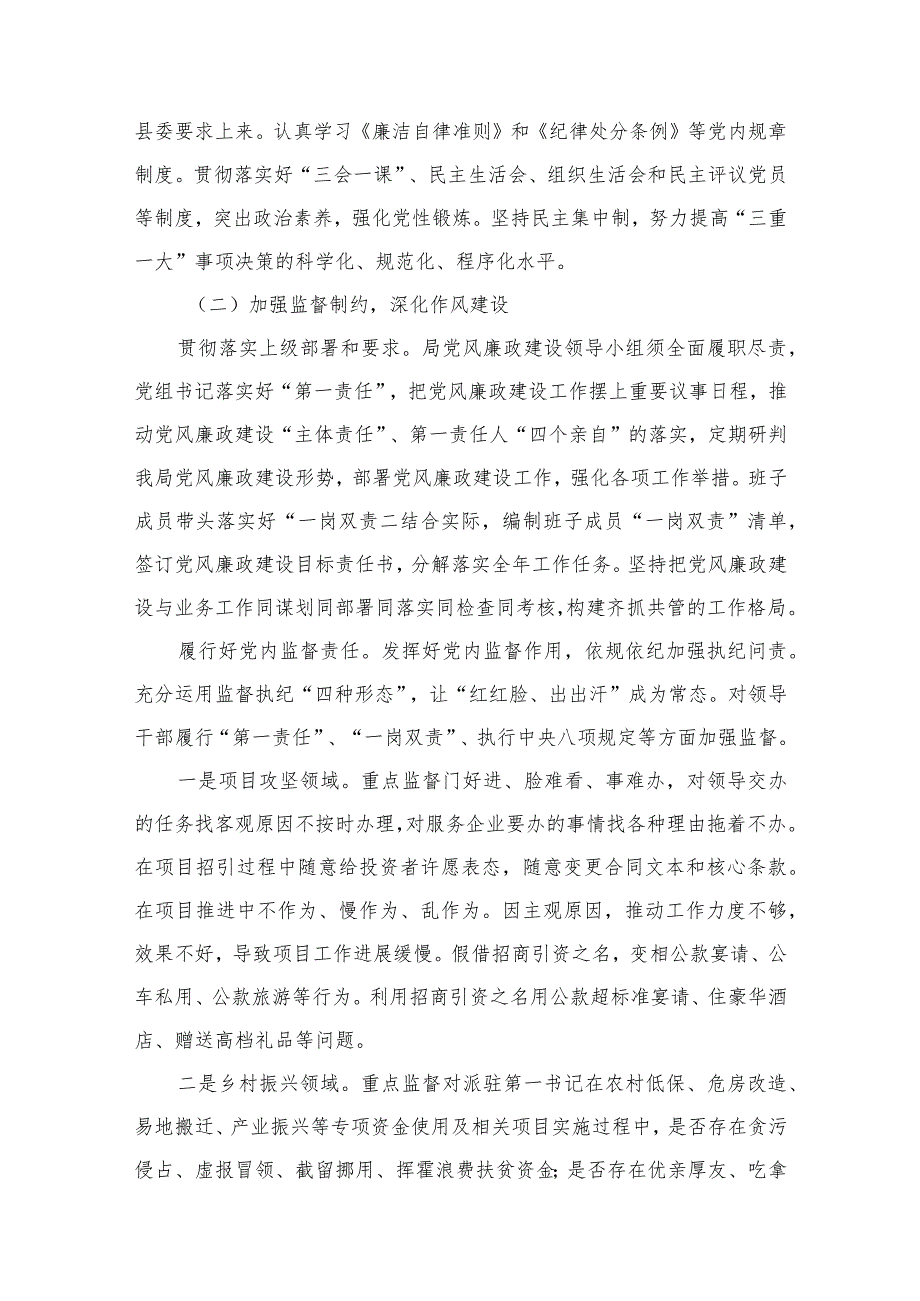 县委要求上来。认真学习《廉洁自律准则》和《纪律处分条例》等党内规章
制度。贯彻落实好“三会一课”、民主生活会、组织生活会和民主评议党员
等制度，突出政治素养，强化党性锻炼。坚持民主集中制，努力提高“三重
一大”事项决策的科学化、规范化、程序化水平。
（二）加强监督制约，深化作风建设
贯彻落实上级部署和要求。局党风廉政建设领导小组须全面履职尽责，
党组书记落实好“第一责任”，把党风廉政建设工作摆上重要议事日程，推
动党风廉政建设“主体责任”、第一责任人“四个亲自”的落实，定期研判
我局党风廉政建设形势，部署党风廉政建设工作，强化各项工作举措。班子
成员带头落实好“一岗双责二结合实际，编制班子成员“一岗双责”清单，
签订党风廉政建设目标责任书，分解落实全年工作任务。坚持把党风廉政建
设与业务工作同谋划同部署同落实同检查同考核，构建齐抓共管的工作格局。
履行好党内监督责任。发挥好党内监督作用，依规依纪加强执纪问责。
充分运用监督执纪“四种形态”，让“红红脸、出出汗”成为常态。对领导
干部履行“第一责任”、“一岗双责”、执行中央八项规定等方面加强监督。
一是项目攻坚领域。重点监督门好进、脸难看、事难办，对领导交办
的任务找客观原因不按时办理，对服务企业要办的事情找各种理由拖着不办。
在项目招引过程中随意给投资者许愿表态，随意变更合同文本和核心条款。
在项目推进中不作为、慢作为、乱作为。因主观原因，推动工作力度不够，
效果不好，导致项目工作进展缓慢。假借招商引资之名，变相公款宴请、公
车私用、公款旅游等行为。利用招商引资之名用公款超标准宴请、住豪华酒
店、赠送高档礼品等问题。
二是乡村振兴领域。重点监督对派驻第一书记在农村低保、危房改造、
易地搬迁、产业振兴等专项资金使用及相关项目实施过程中，是否存在贪污
侵占、虚报冒领、截留挪用、挥霍浪费扶贫资金；是否存在优亲厚友、吃拿